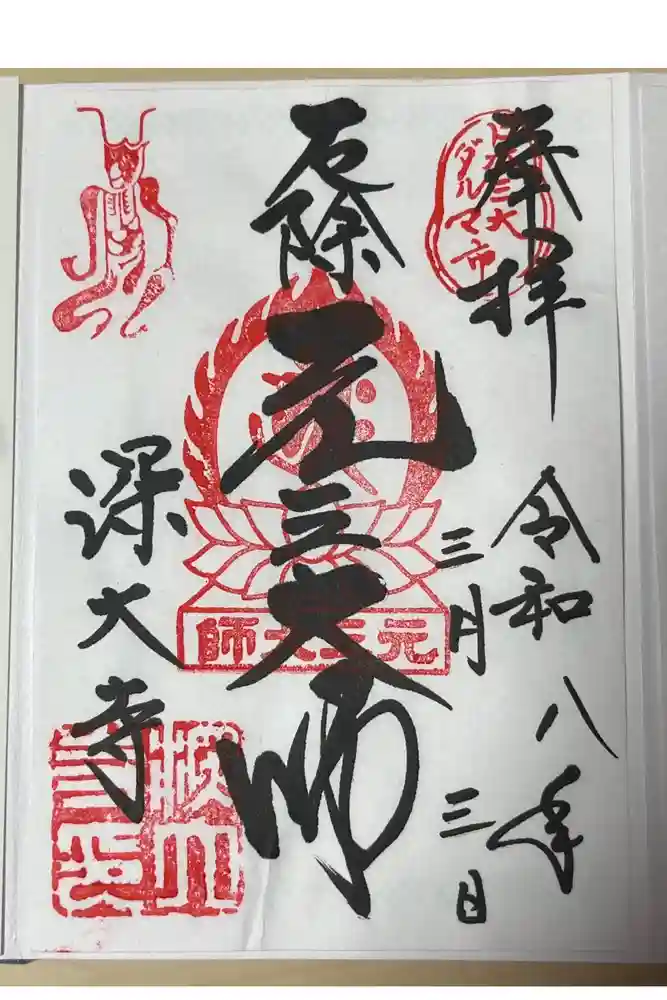 奉拝
日本三大
ダルマ市
令和八年
三月三日
厄除
元三大師
元三大師
深大寺